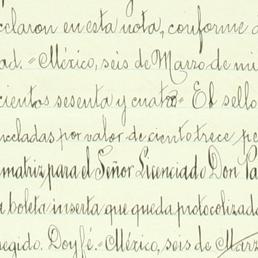 claron en esta nota, conforme á
ad. = México, seis de Marzo de mi
cientos sesenta y cuatro = El sello
nceladas por valor de ciento trece, pe
matriz, para el Señor Licenciado Don Pa
a boleta inserta que queda protocolizada
regido. Doy fé. = México, seis de Marz